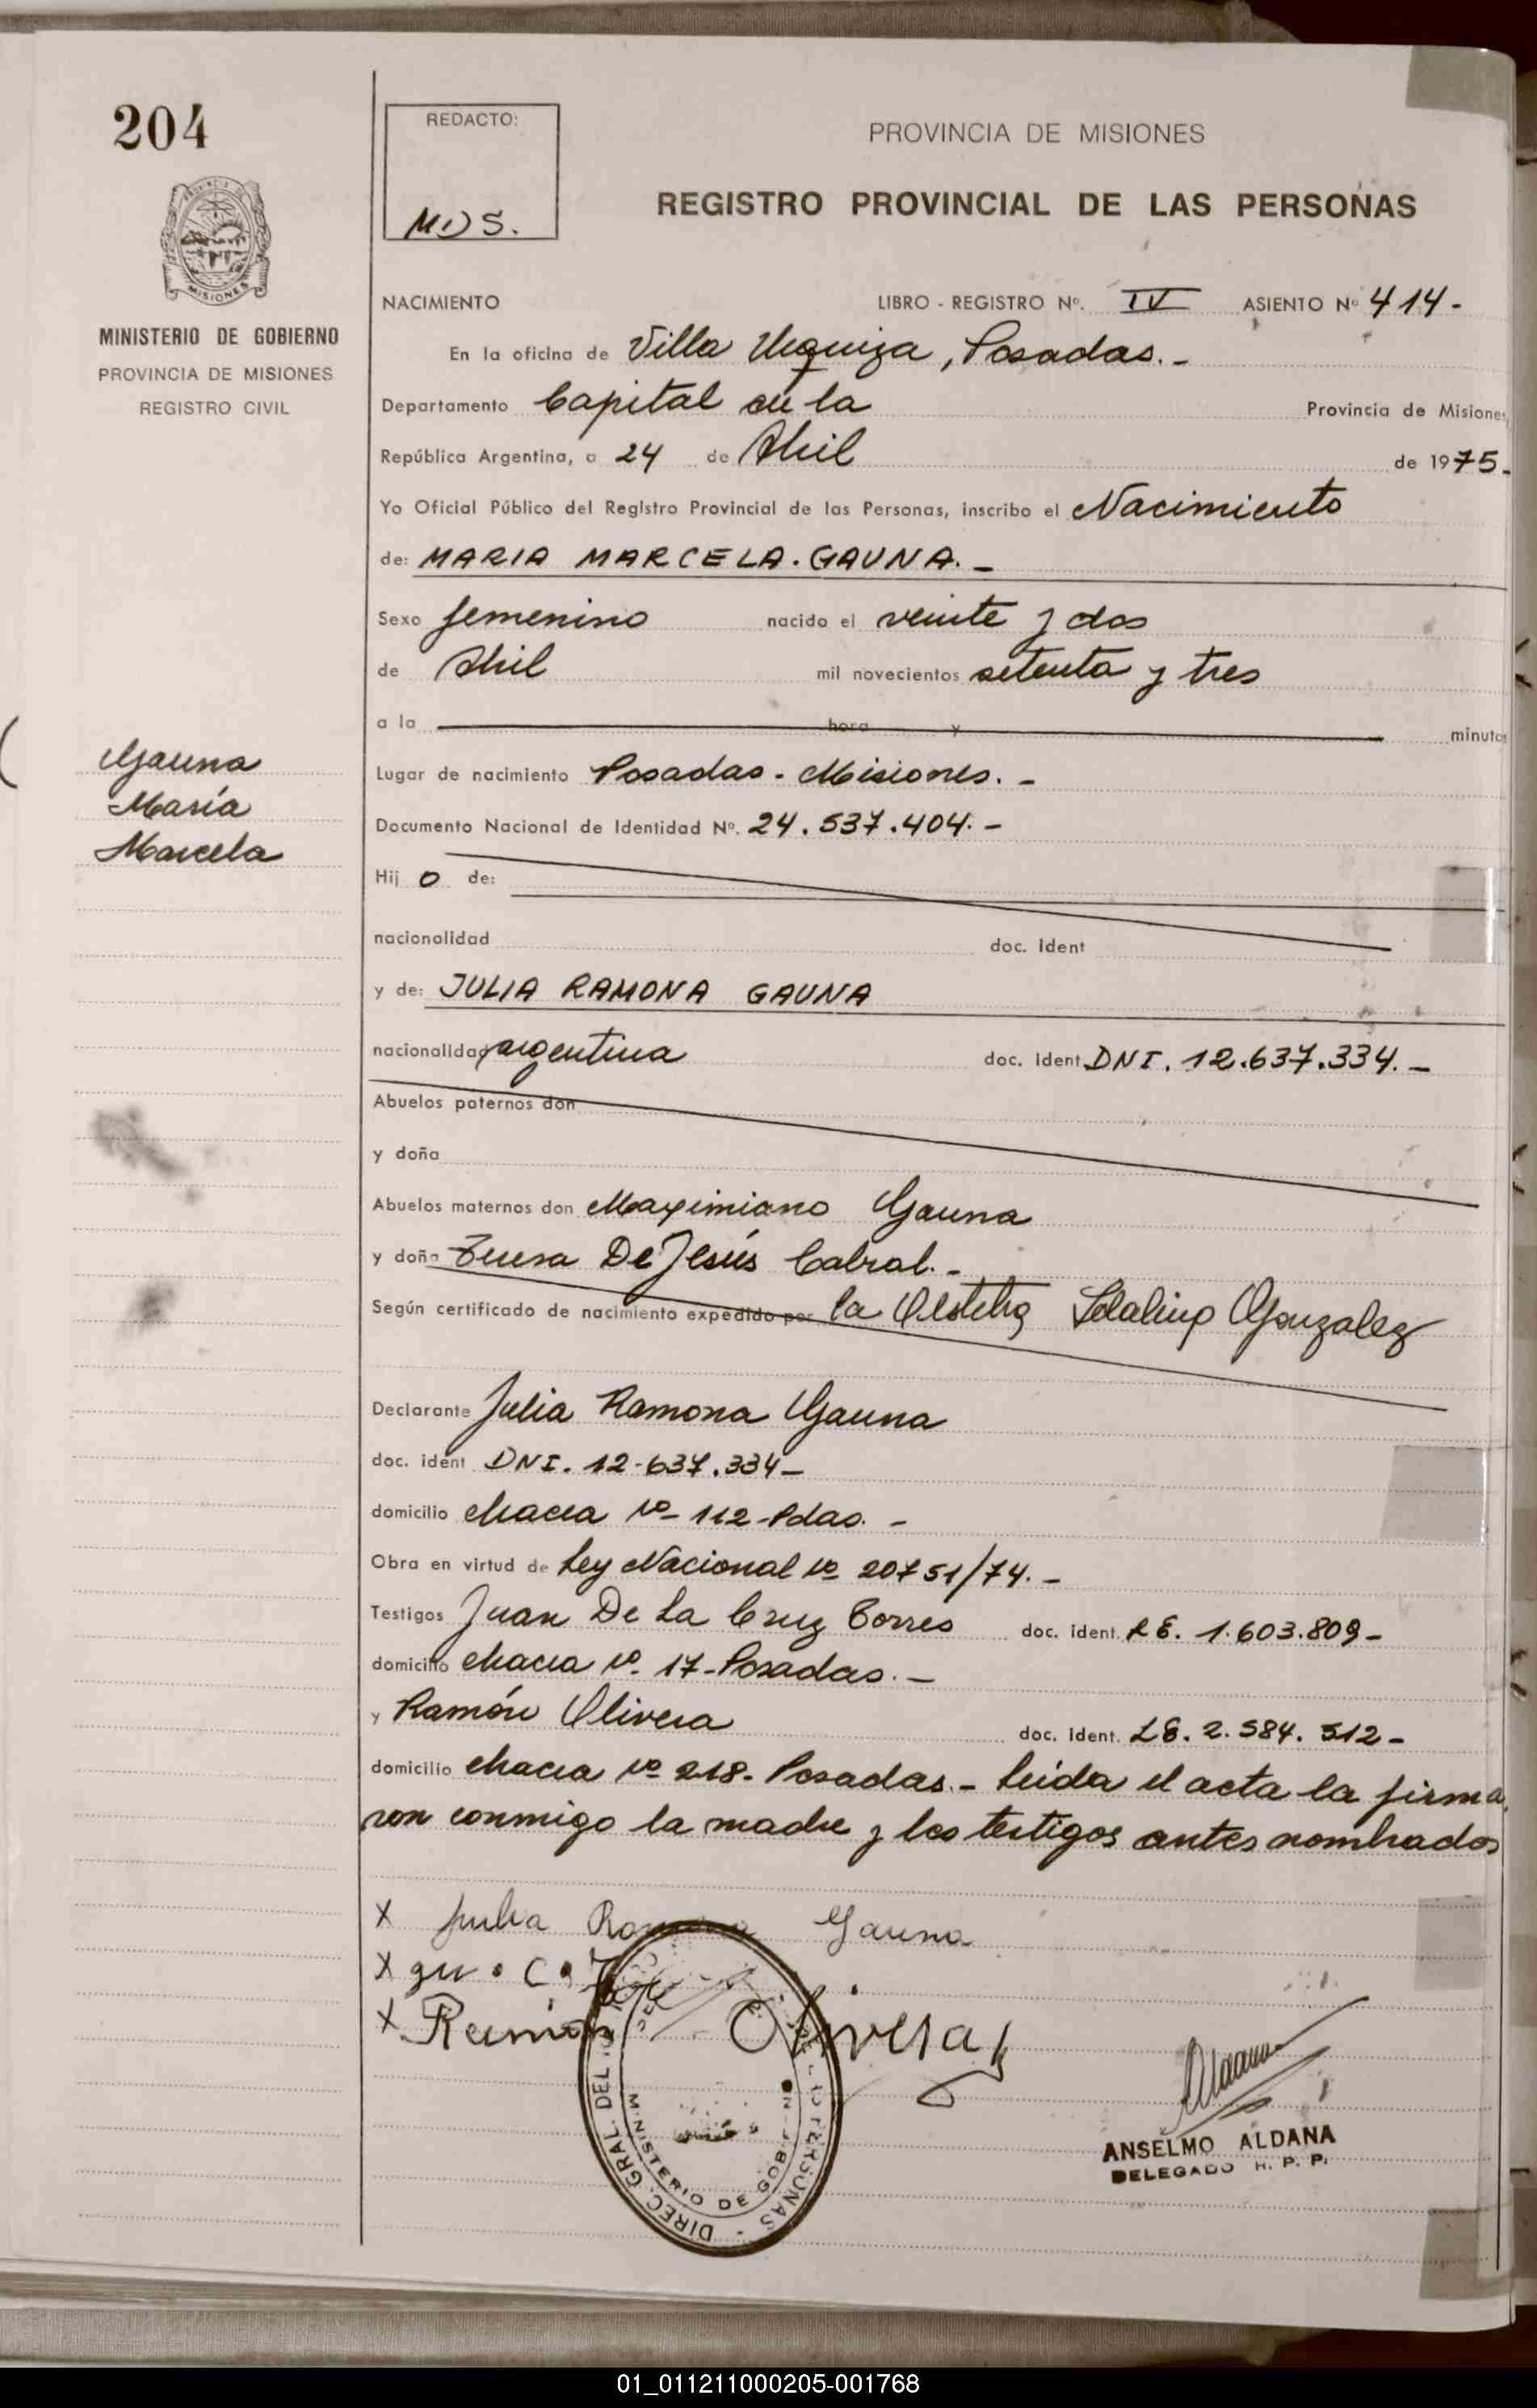 204
REDACTO:
MDS.
PROVINCIA DE MISIONES
REGISTRO PROVINCIAL DE LAS PERSONAS
MISIONES
MINISTERIO DE GOBIERNO
PROVINCIA DE MISIONES
REGISTRO CIVIL
NACIMIENTO LIBRO - REGISTRO Nº. IV ASIENTO Nº 414-
En la oficina de Villa Urquiza, Posadas.-
Departamento Capital en la Provincia de Misiones,
República Argentina, a 24 de Abril de 1975.
Yo Oficial Público del Registro Provincial de las Personas, inscribo el Nacimiento
de: MARIA MARCELA. GAUNA.-
Sexo femenino nacido el veinte y dos
de Abril mil novecientos setenta y tres
a la hora y minutos
Gauna
María
Marcela
Lugar de nacimiento Posadas - Misiones.-
Documento Nacional de Identidad Nº. 24.537.404.-
Hij o de:
nacionalidad doc. ident
y de: JULIA RAMONA GAUNA
nacionalidad argentina doc. ident DNI. 12.637.334.-
Abuelos paternos don
y doña
Abuelos maternos don Maximiano Gauna
y doña Teresa De Jesús Cabral.-
Según certificado de nacimiento expedido por la Gonzalez
Declarante Julia Ramona Gauna
doc. ident DNI. 12-637.334-
domicilio chacra Nº- 112-Pdas. -
Obra en virtud de Ley Nacional Nº 20751/74.-
Testigos Juan De La Cruz Torres doc. ident. LE. 1.603.809-
domicilio chacra Nº. 17-Posadas.-
y Ramón Olivera doc. ident. LE. 2.584. 512-
domicilio chacra Nº 218- Posadas.- Leida el acta la firma
ron conmigo la madre y los testigos antes nombrados
X Julia Ramona Gauna
X
X Ramón Olivera
DIREC. GRAL. DEL PERSONAS -
MINISTERIO DE GOB
ANSELMO ALDANA
DELEGADO R. P. P.
01_011211000205-001768